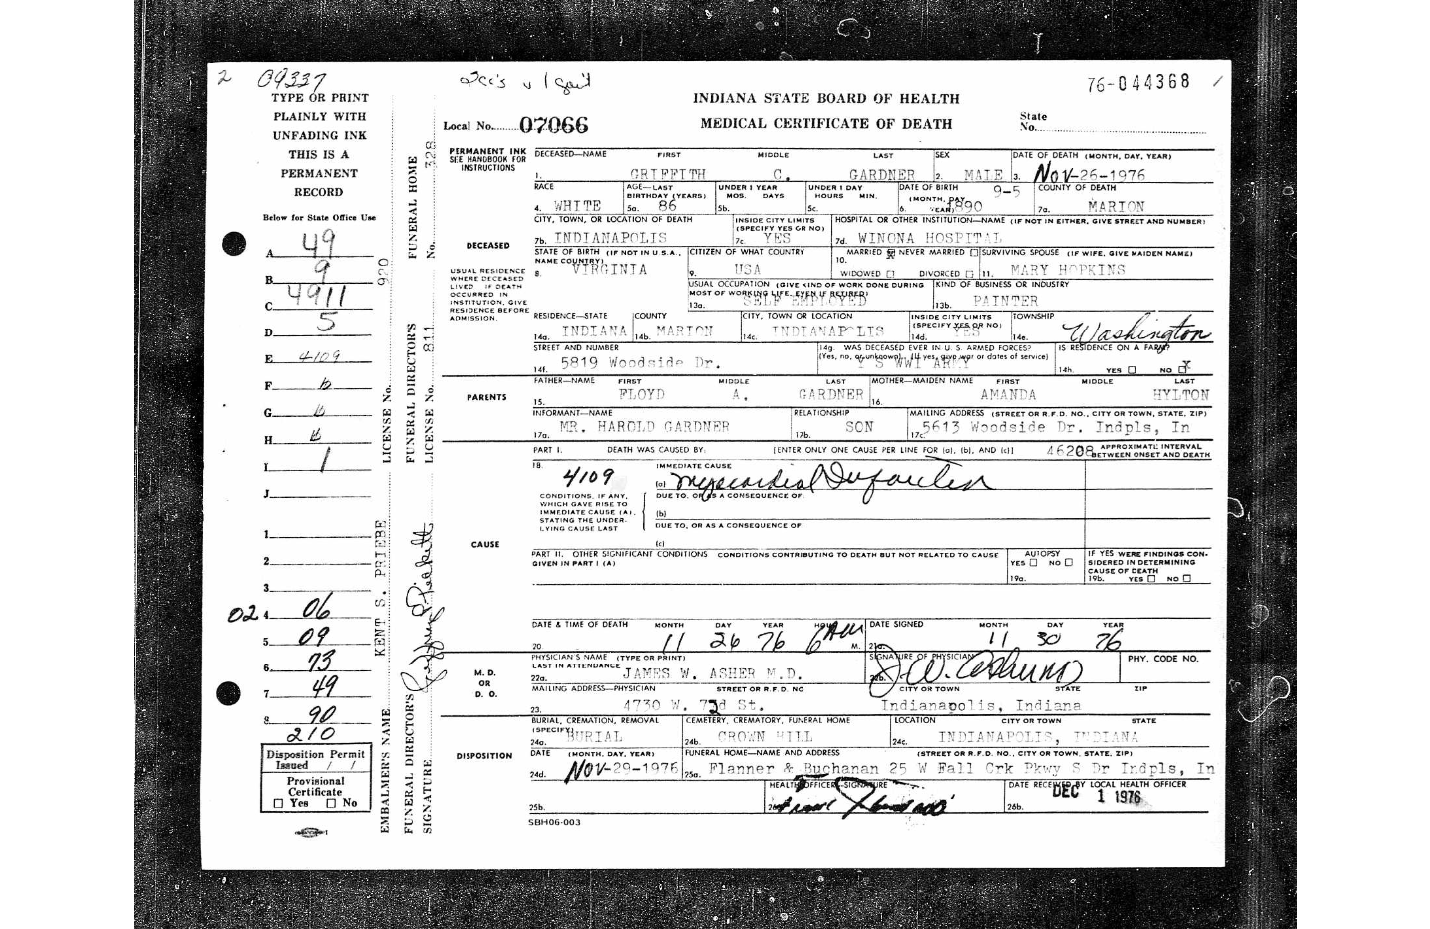 2 09337
76-044368
TYPE OR PRINT
PLAINLY WITH
UNFADING INK
THIS IS A
PERMANENT
RECORD
Below for State Office Use
A 49
B 9
C 4911
D 5
E 4109
F b
G b
H b
I 1
J
1.
2.
3.
02 4. 06
5. 09
6. 73
7. 49
8. 90
210
Disposition Permit
Issued / /
Provisional
Certificate
☐ Yes ☐ No
EMBALMER'S NAME KENT S. PRIEBE LICENSE No. 920
FUNERAL DIRECTOR'S SIGNATURE
FUNERAL DIRECTOR'S LICENSE No. 811
FUNERAL HOME No. 328
INDIANA STATE BOARD OF HEALTH
Local No. 07066 MEDICAL CERTIFICATE OF DEATH State No.
PERMANENT INK
SEE HANDBOOK FOR
INSTRUCTIONS
DECEASED—NAME FIRST MIDDLE LAST SEX DATE OF DEATH (MONTH, DAY, YEAR)
1. GRIFFITH C. GARDNER 2. MALE 3. Nov-26-1976
RACE AGE—LAST BIRTHDAY (YEARS) UNDER 1 YEAR MOS. DAYS UNDER 1 DAY HOURS MIN. DATE OF BIRTH (MONTH, DAY, YEAR) COUNTY OF DEATH
4. WHITE 5a. 86 5b. 5c. 6. 9-5 1890 7a. MARION
CITY, TOWN, OR LOCATION OF DEATH INSIDE CITY LIMITS (SPECIFY YES OR NO) HOSPITAL OR OTHER INSTITUTION—NAME (IF NOT IN EITHER, GIVE STREET AND NUMBER)
7b. INDIANAPOLIS 7c. YES 7d. WINONA HOSPITAL
DECEASED
USUAL RESIDENCE
WHERE DECEASED
LIVED IF DEATH
OCCURRED IN
INSTITUTION, GIVE
RESIDENCE BEFORE
ADMISSION.
STATE OF BIRTH (IF NOT IN U.S.A., NAME COUNTRY) CITIZEN OF WHAT COUNTRY 10. MARRIED ☒ NEVER MARRIED ☐ WIDOWED ☐ DIVORCED ☐ SURVIVING SPOUSE (IF WIFE, GIVE MAIDEN NAME)
8. VIRGINIA 9. USA 11. MARY HOPKINS
USUAL OCCUPATION (GIVE KIND OF WORK DONE DURING MOST OF WORKING LIFE, EVEN IF RETIRED) KIND OF BUSINESS OR INDUSTRY
13a. SELF EMPLOYED 13b. PAINTER
RESIDENCE—STATE COUNTY CITY, TOWN OR LOCATION INSIDE CITY LIMITS (SPECIFY YES OR NO) TOWNSHIP
14a. INDIANA 14b. MARION 14c. INDIANAPOLIS 14d. YES 14e. Washington
STREET AND NUMBER 14g. WAS DECEASED EVER IN U. S. ARMED FORCES? (Yes, no, or unknown) (If yes, give war or dates of service) IS RESIDENCE ON A FARM?
14f. 5819 Woodside Dr. Y S WWI ARMY 14h. YES ☐ NO ☒
PARENTS
FATHER—NAME FIRST MIDDLE LAST MOTHER—MAIDEN NAME FIRST MIDDLE LAST
15. FLOYD A. GARDNER 16. AMANDA HYLTON
INFORMANT—NAME RELATIONSHIP MAILING ADDRESS (STREET OR R.F.D. NO., CITY OR TOWN, STATE, ZIP)
17a. MR. HAROLD GARDNER 17b. SON 17c. 5613 Woodside Dr. Indpls, In
PART I. DEATH WAS CAUSED BY: [ENTER ONLY ONE CAUSE PER LINE FOR (a), (b), AND (c)] 46208 APPROXIMATE INTERVAL BETWEEN ONSET AND DEATH
18. 4109 IMMEDIATE CAUSE
(a) Myocardial Infarction
CONDITIONS, IF ANY,
WHICH GAVE RISE TO
IMMEDIATE CAUSE (A),
STATING THE UNDER-
LYING CAUSE LAST
DUE TO, OR AS A CONSEQUENCE OF
(b)
DUE TO, OR AS A CONSEQUENCE OF
(c)
CAUSE
PART II. OTHER SIGNIFICANT CONDITIONS CONDITIONS CONTRIBUTING TO DEATH BUT NOT RELATED TO CAUSE GIVEN IN PART I (A)
AUTOPSY YES ☐ NO ☐ 19a.
IF YES WERE FINDINGS CONSIDERED IN DETERMINING CAUSE OF DEATH 19b. YES ☐ NO ☐
DATE & TIME OF DEATH MONTH DAY YEAR HOUR DATE SIGNED MONTH DAY YEAR
20. 11 26 76 6 AM M. 21a. 11 30 76
M. D.
OR
D. O.
PHYSICIAN'S NAME (TYPE OR PRINT) LAST IN ATTENDANCE SIGNATURE OF PHYSICIAN PHY. CODE NO.
22a. JAMES W. ASHER M.D. 22b.
MAILING ADDRESS—PHYSICIAN STREET OR R.F.D. NO CITY OR TOWN STATE ZIP
23. 4730 W. 73d St. Indianapolis, Indiana
DISPOSITION
BURIAL, CREMATION, REMOVAL (SPECIFY) CEMETERY, CREMATORY, FUNERAL HOME LOCATION CITY OR TOWN STATE
24a. BURIAL 24b. CROWN HILL 24c. INDIANAPOLIS, INDIANA
DATE (MONTH, DAY, YEAR) FUNERAL HOME—NAME AND ADDRESS (STREET OR R.F.D. NO., CITY OR TOWN, STATE, ZIP)
24d. Nov-29-1976 25a. Flanner & Buchanan 25 W Fall Crk Pkwy S Dr Indpls, In
HEALTH OFFICER—SIGNATURE DATE RECEIVED BY LOCAL HEALTH OFFICER
25b. 26a. 26b. DEC 1 1976
SBH06-003